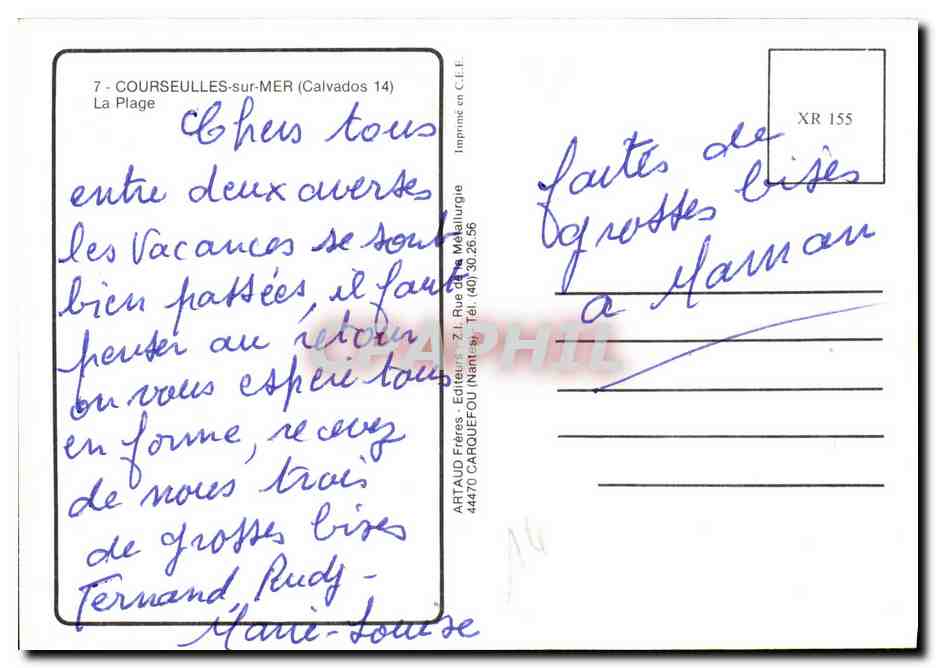 7 - COURSEULLES-sur-MER (Calvados 14)
La Plage
Chers tous
entre deux averses
les Vacances se sont
bien passées, il faut
penser au retour
on vous espère tous
en forme, recevez
de nous trois
de grosses bises
Fernand, Rudy -
Marie-Louise
Imprimé en C.E.E.
ARTAUD Frères - Editeurs - Z.I. Rue de la Métallurgie
44470 CARQUEFOU (Nantes) Tél. (40) 30.26.56
XR 155
faites de
grosses bises
a Maman
CPAPHIL
14